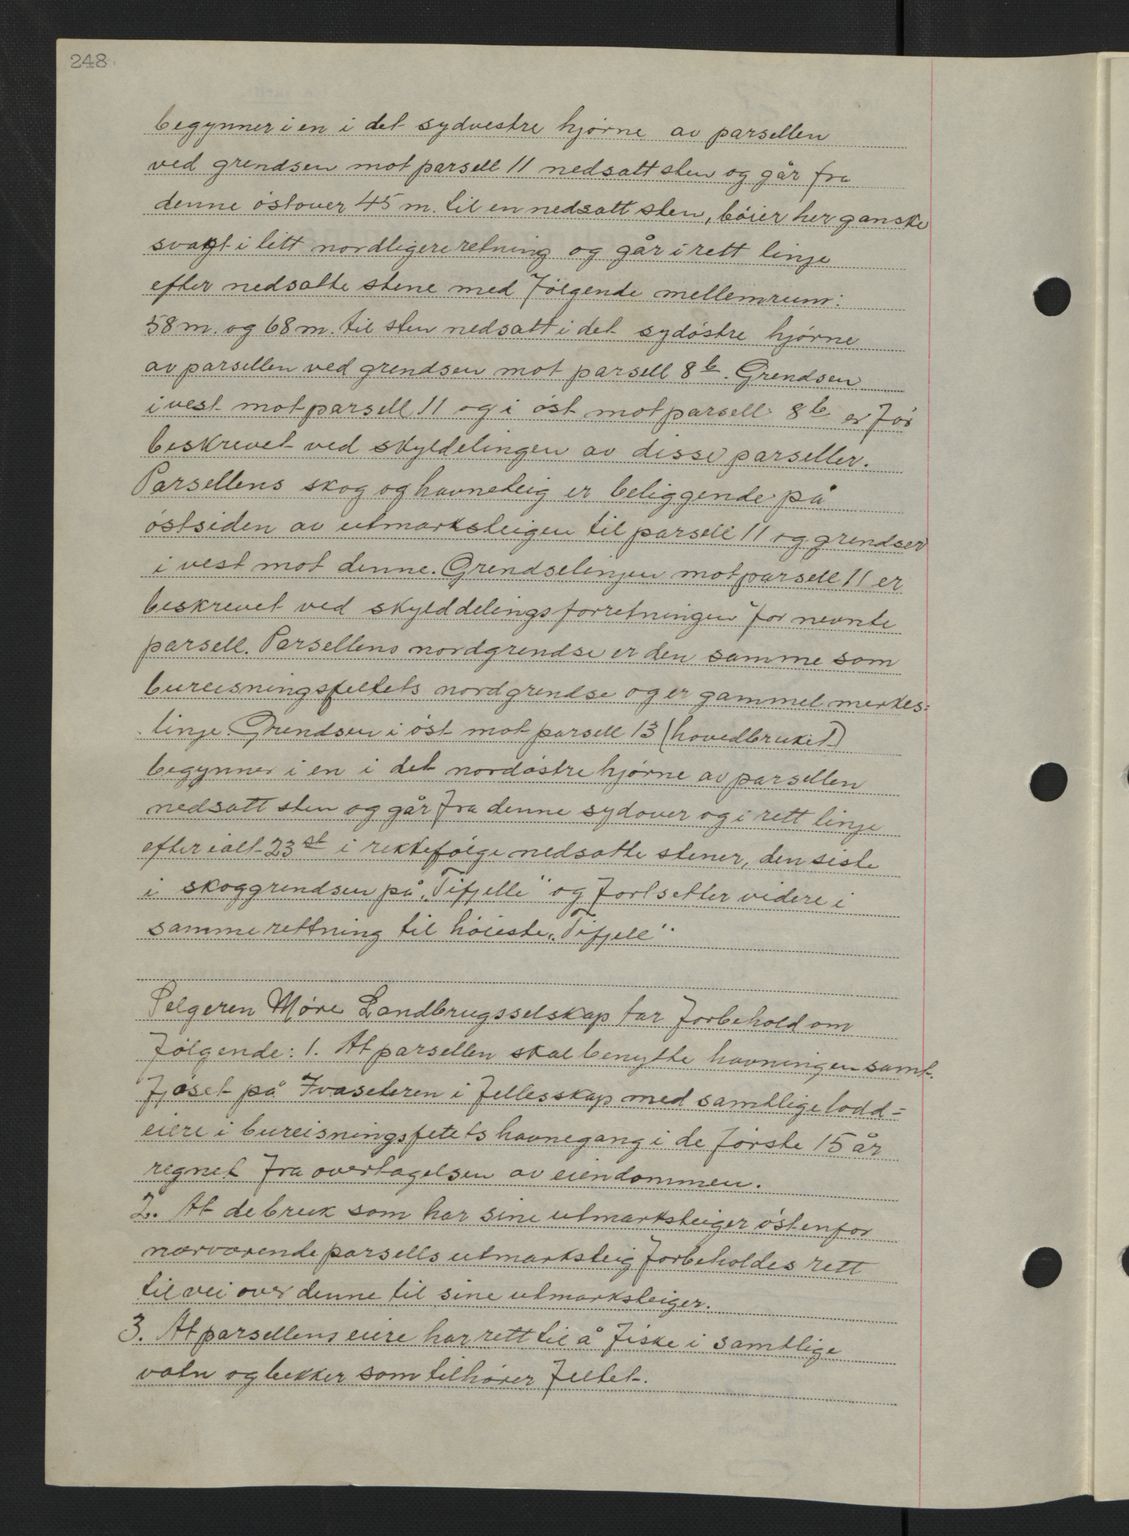 248
begynner i en i det sydvestre hjørne av parsellen
ved grendsen mot parsell 11 nedsatt sten og går fra
denne østover 45 m. til en nedsatt sten, bøier her ganske
svagt i litt nordligere retning og går i rett linje
efter nedsatte stene med følgende mellemrum:
58 m. og 68 m. til sten nedsatt i det sydøstre hjørne
av parsellen ved grendsen mot parsell 8b. Grendsen
i vest mot parsell 11 og i øst mot parsell 8b er før
beskrevet ved skyldelingen av disse parseller.
Parsellens skog og havneteig er beliggende på
østsiden av utmarksteigen til parsell 11 og grendser
i vest mot denne. Grendselinjen mot parsell 11 er
beskrevet ved skylddelingsforretningen for nevnte
parsell. Parsellens nordgrendse er den samme som
bureisningsfeltets nordgrendse og er gammel merkes=
linje Grendsen i øst mot parsell 13 (hovedbruket)
begynner i en i det nordøstre hjørne av parsellen
nedsatt sten og går fra denne sydover og i rett linje
efter ialt 23 st i rekkefølge nedsatte stener, den siste
i skoggrendsen på „Tifjelle" og fortsetter videre i
samme rettning til høieste „Tifjell"
Selgeren Møre Landbrugsselskap tar forbehold om
følgende: 1. At parsellen skal benytte havningen samt
fjøset på Ivaseteren i fellesskap med samtlige lodd=
eiere i bureisningsfetets havnegang i de første 15 år
regnet fra overtagelsen av eiendommen.
2. At de bruk som har sine utmarksteiger østenfor
nærværende parsells utmarksteig forbeholdes rett
til vei over denne til sine utmarksteiger.
3. At parsellens eiere har rett til å fiske i samtlige
vatn og bekker som tilhører feltet.